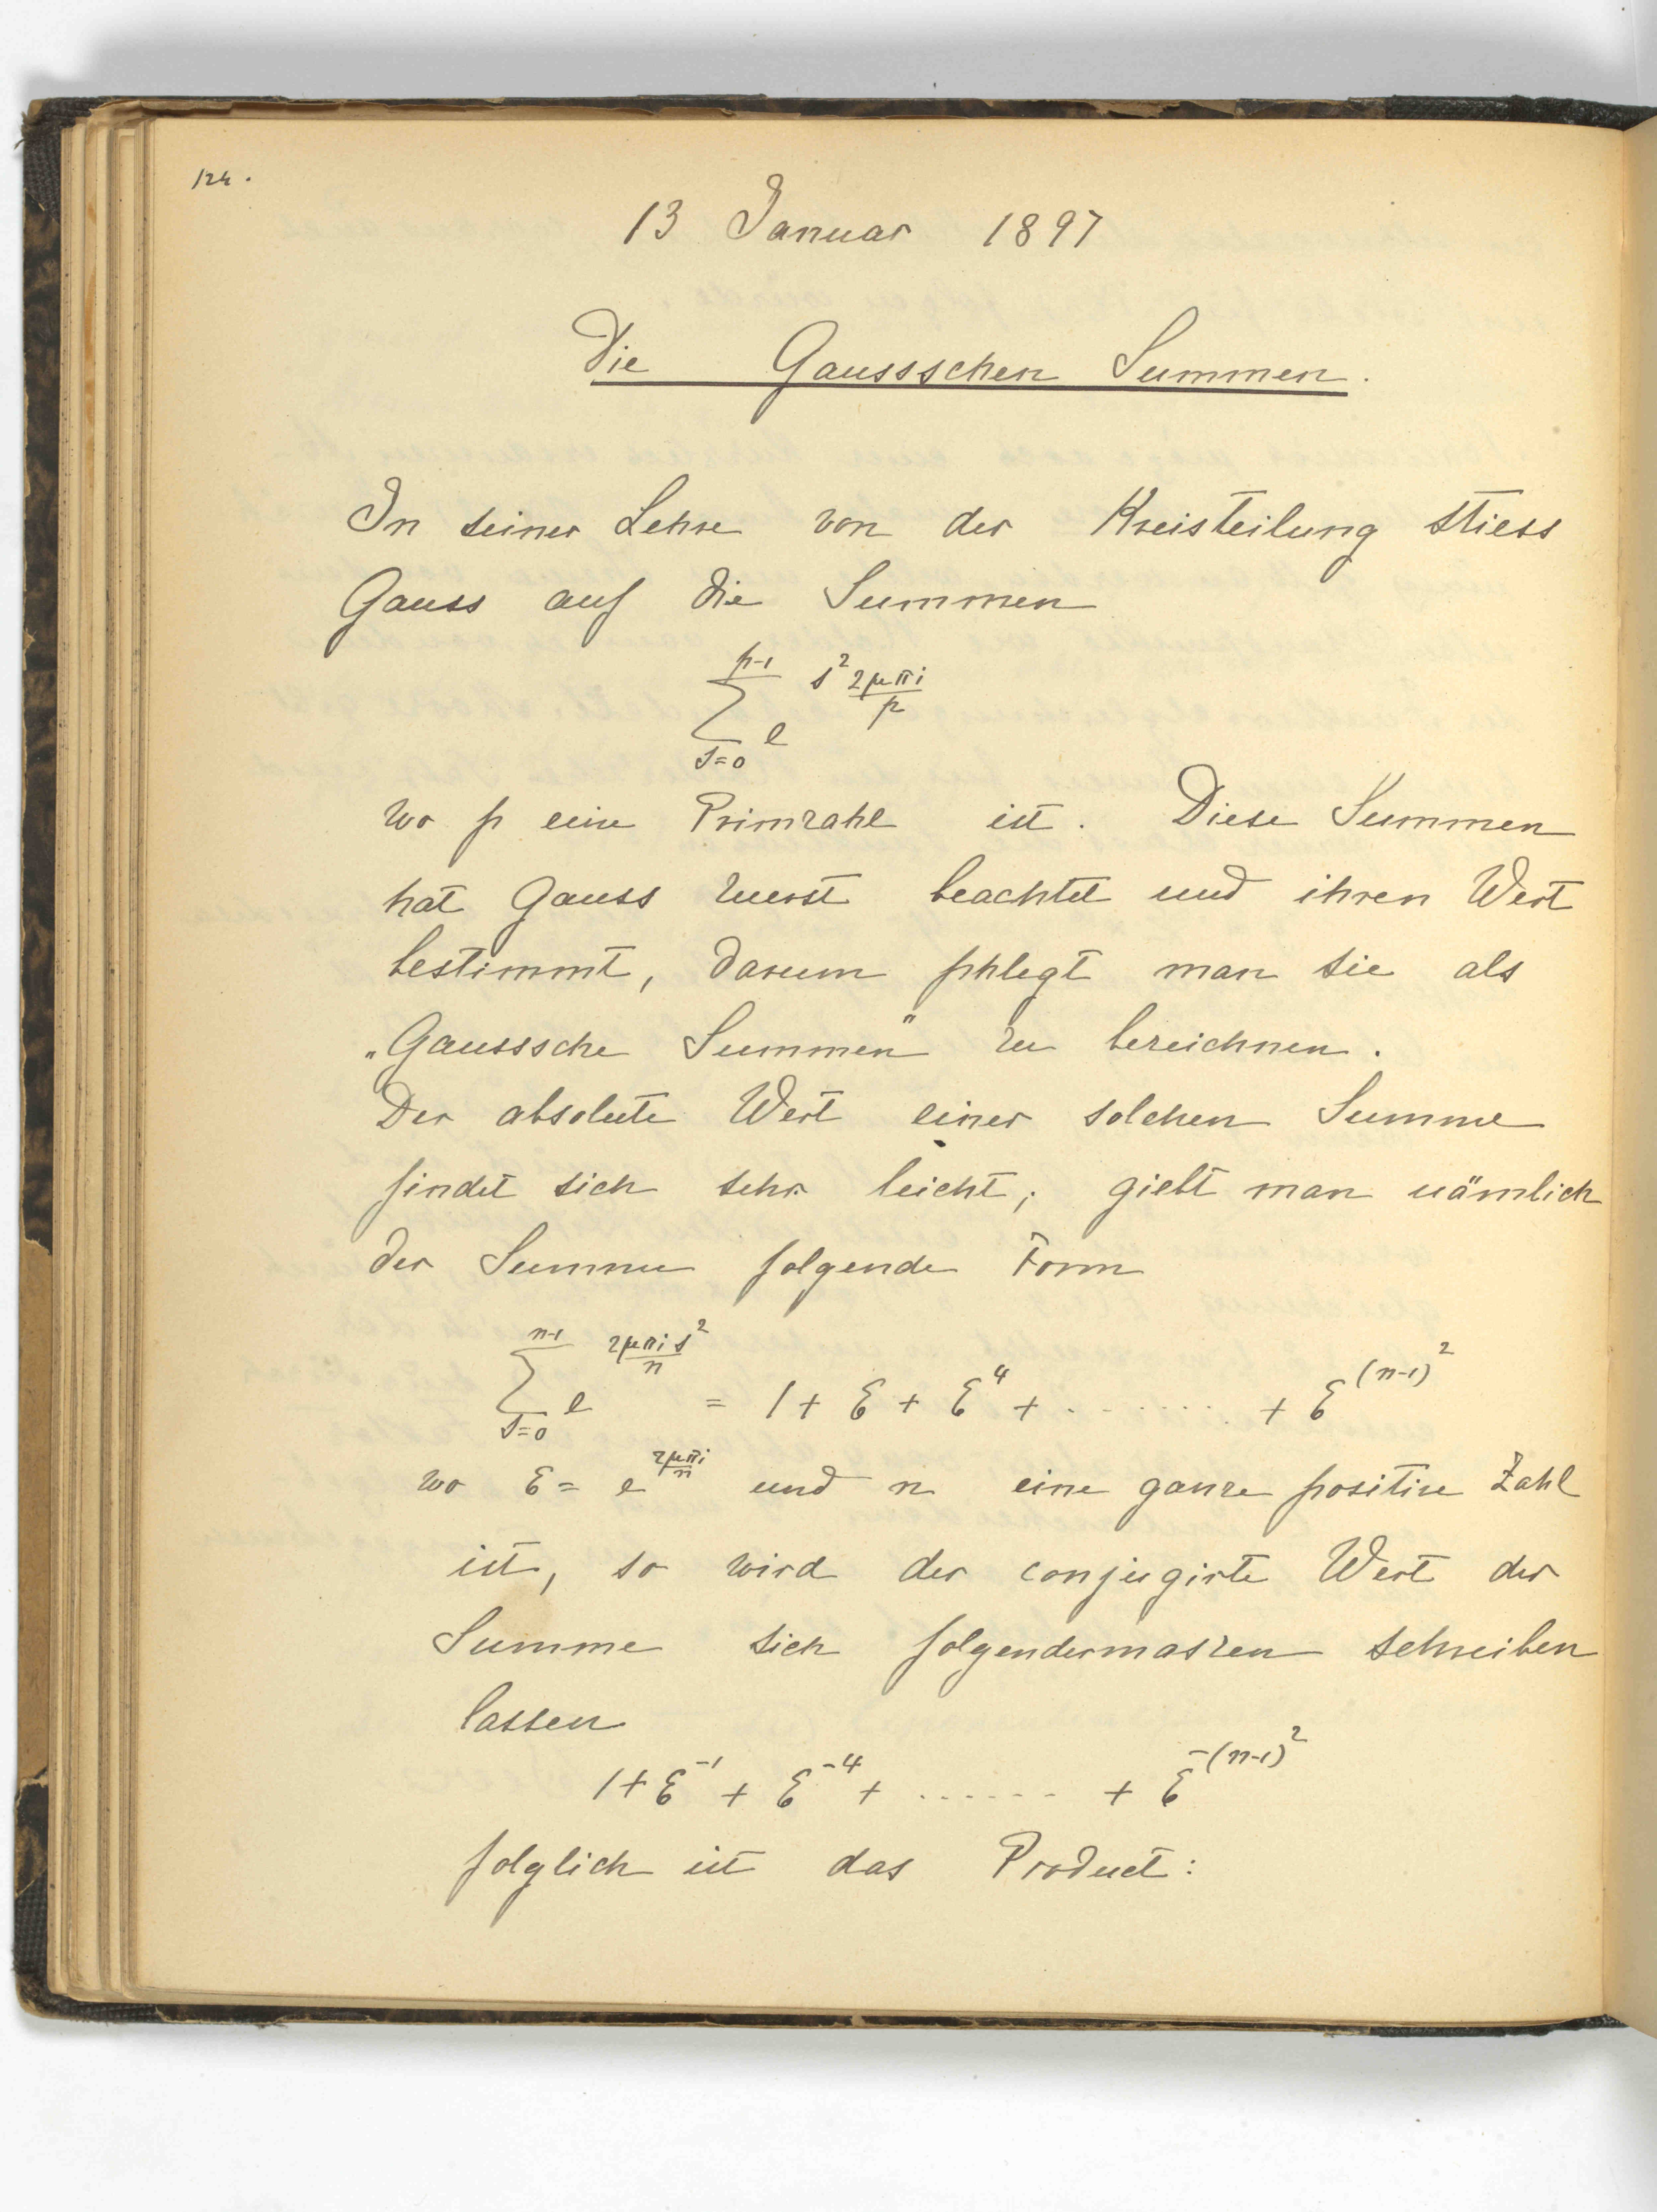 124.
13 Januar 1897
Die Gaussschen Summen.
In seiner Lehre von der Kreisteilung stiess
Gauss auf die Summen
\sum_{s=0}^{p-1} e^{s^2 \frac{2\mu\pi i}{p}}
wo p eine Primzahl ist. Diese Summen
hat Gauss zuerst beachtet und ihren Wert
bestimmt, darum phlegt man sie als
„Gausssche Summen" zu bezeichnen.
Der absolute Wert einer solchen Summe
findet sich sehr leicht; giebt man nämlich
der Summe folgende Form
\sum_{s=0}^{n-1} e^{\frac{2\mu\pi i s^2}{n}} = 1 + ε + ε^4 + ........ + ε^{(n-1)^2}
wo ε = e^{\frac{2\mu\pi i}{n}} und n eine ganze positive Zahl
ist, so wird der conjugirte Wert der
Summe sich folgendermaszen schreiben
lassen
1 + ε^{-1} + ε^{-4} + ...... + ε^{-(n-1)^2}
folglich ist das Product: